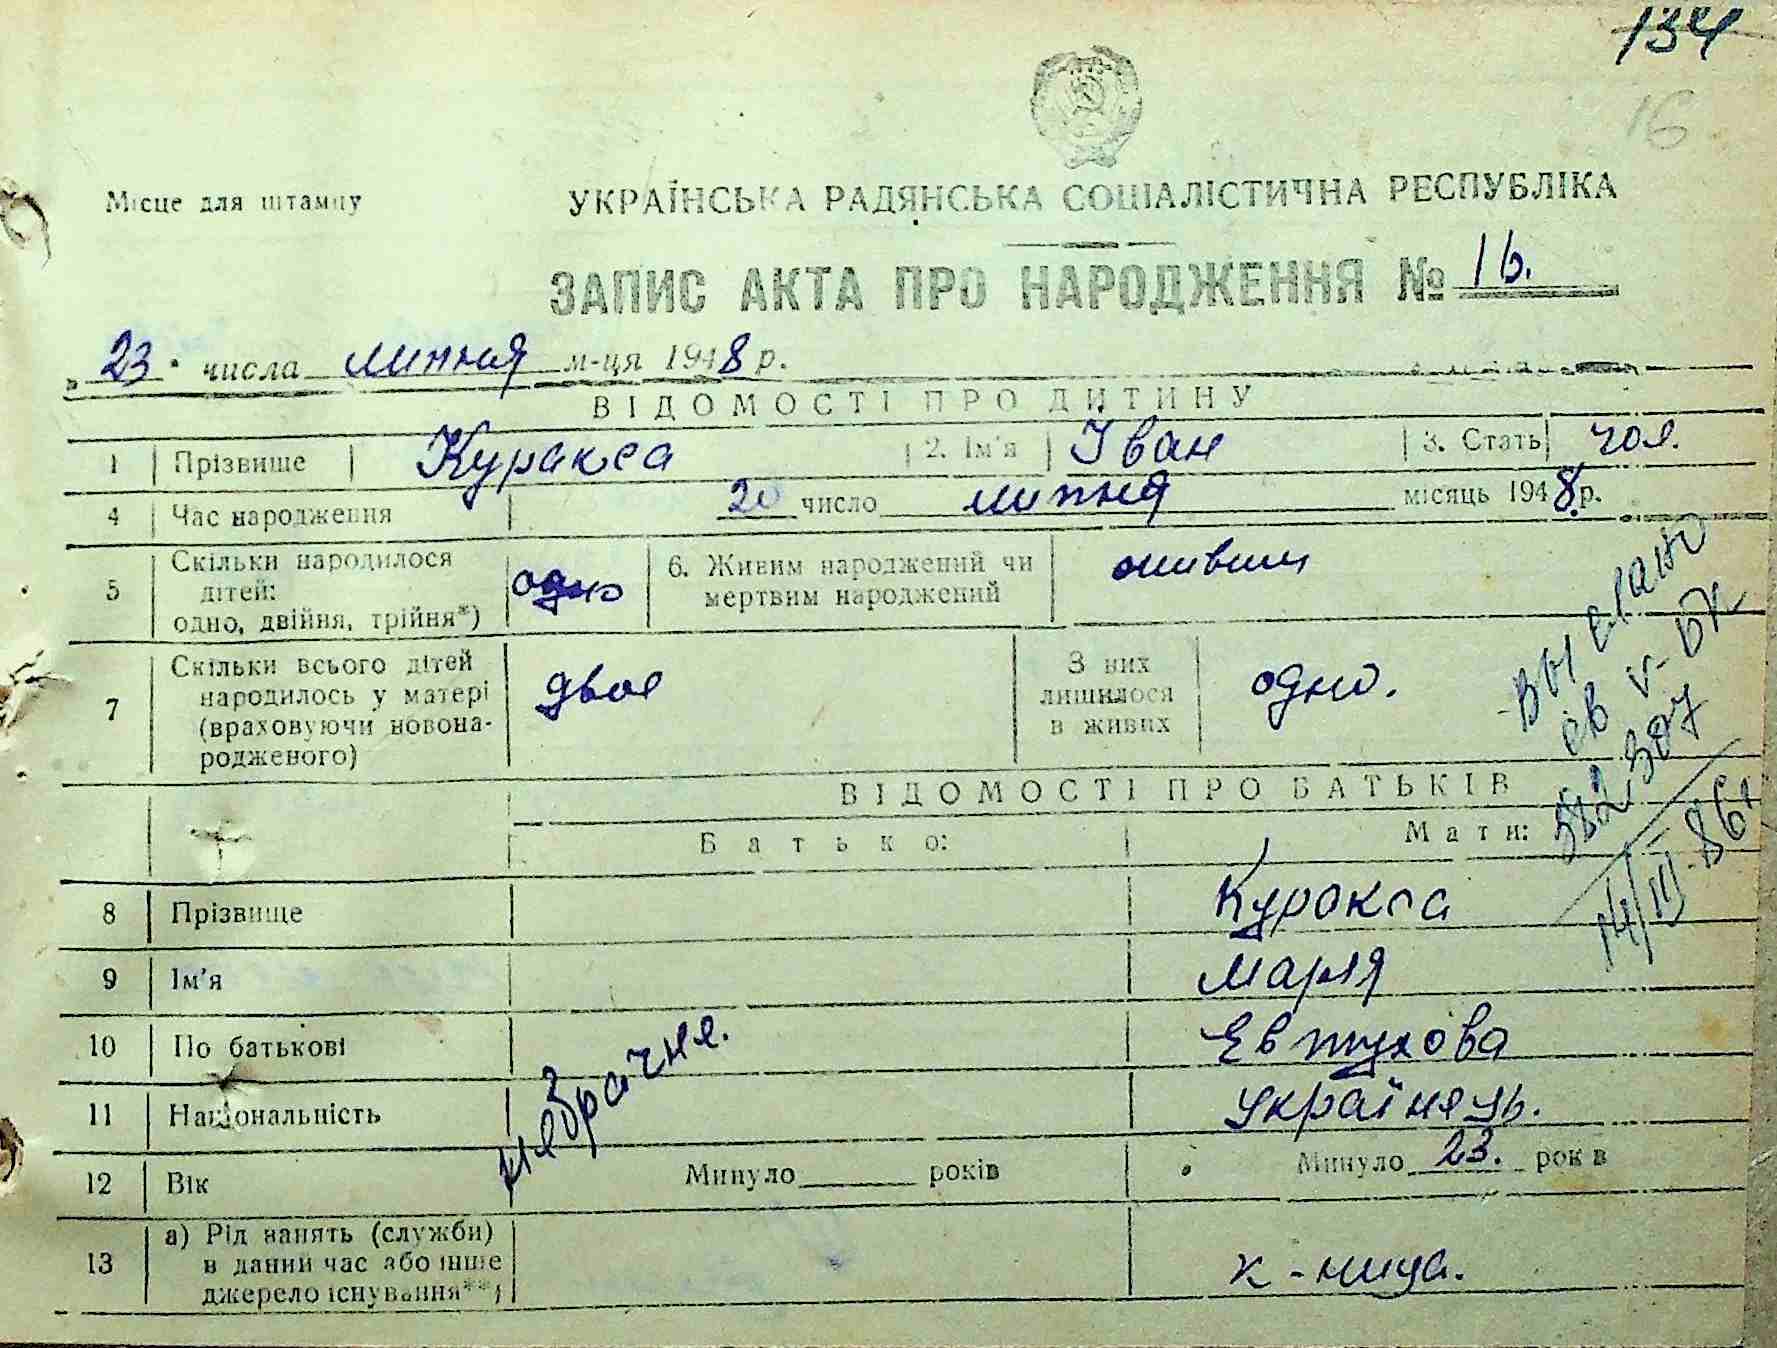 134
16
Місце для штампу
УКРАЇНСЬКА РАДЯНСЬКА СОЦІАЛІСТИЧНА РЕСПУБЛІКА
ЗАПИС АКТА ПРО НАРОДЖЕННЯ № 16.
„ 23 " числа липня м-ця 1948 р.
ВІДОМОСТІ ПРО ДИТИНУ
1 Прізвище Куракса 2. Ім'я Іван 3. Стать чол.
4 Час народження 20 число липня місяць 1948 р.
5 Скільки народилося дітей: одно, двійня, трійня*) одно 6. Живим народжений чи мертвим народжений живим
7 Скільки всього дітей народилось у матері (враховуючи новонародженого) двоє З них лишилося в живих одно.
Выслано
св V-БК
582307
14/III-86г
ВІДОМОСТІ ПРО БАТЬКІВ
Батько: Мати:
8 Прізвище Куракса
9 Ім'я Марія
10 По батькові Евтухова
11 Національність українець.
небрачне.
12 Вік Минуло років Минуло 23. років
13 а) Рід занять (служби) в даний час або інше джерело існування**) к-ниця.